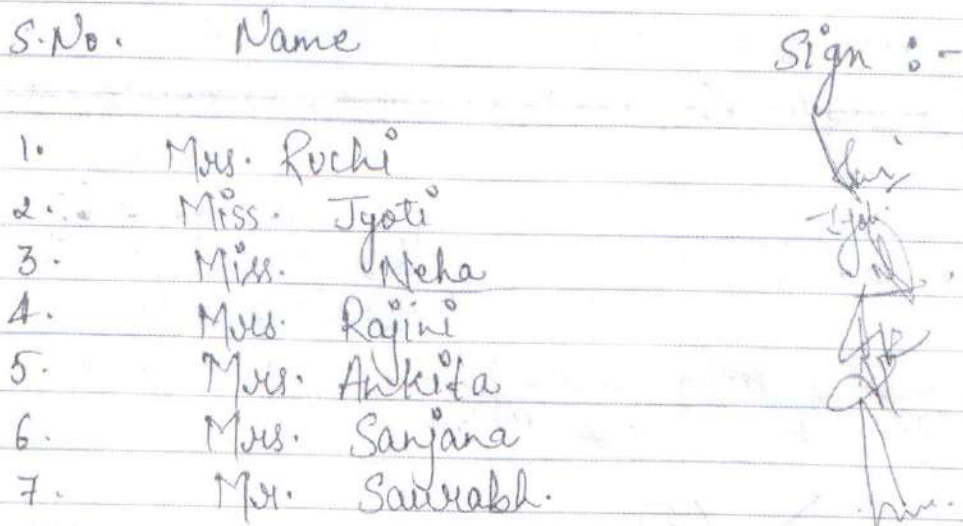 S.No. Name Sign :-
1. Mrs. Ruchi
2. Miss. Jyoti Jyoti
3. Miss. Neha
4. Mrs. Rajini
5. Mrs. Ankita
6. Mrs. Sanjana
7. Mr. Saurabh.